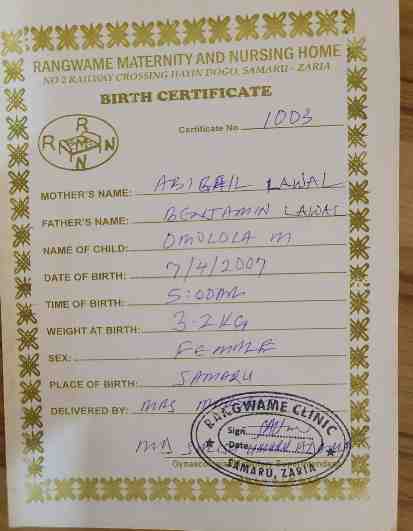 RANGWAME MATERNITY AND NURSING HOME
NO 2 RAILWAY CROSSING HAYIN DOGO, SAMARU - ZARIA
BIRTH CERTIFICATE
Certificate No 1003
R R M N N
MOTHER'S NAME: ABIGAIL LAWAL
FATHER'S NAME: BENJAMIN LAWAL
NAME OF CHILD: OMOLOLA M
DATE OF BIRTH: 7/4/2007
TIME OF BIRTH: 5:00AM
WEIGHT AT BIRTH: 3.2KG
SEX: FEMALE
PLACE OF BIRTH: SAMARU
DELIVERED BY: MRS
RANGWAME CLINIC
Sign.
Date
SAMARU, ZARIA